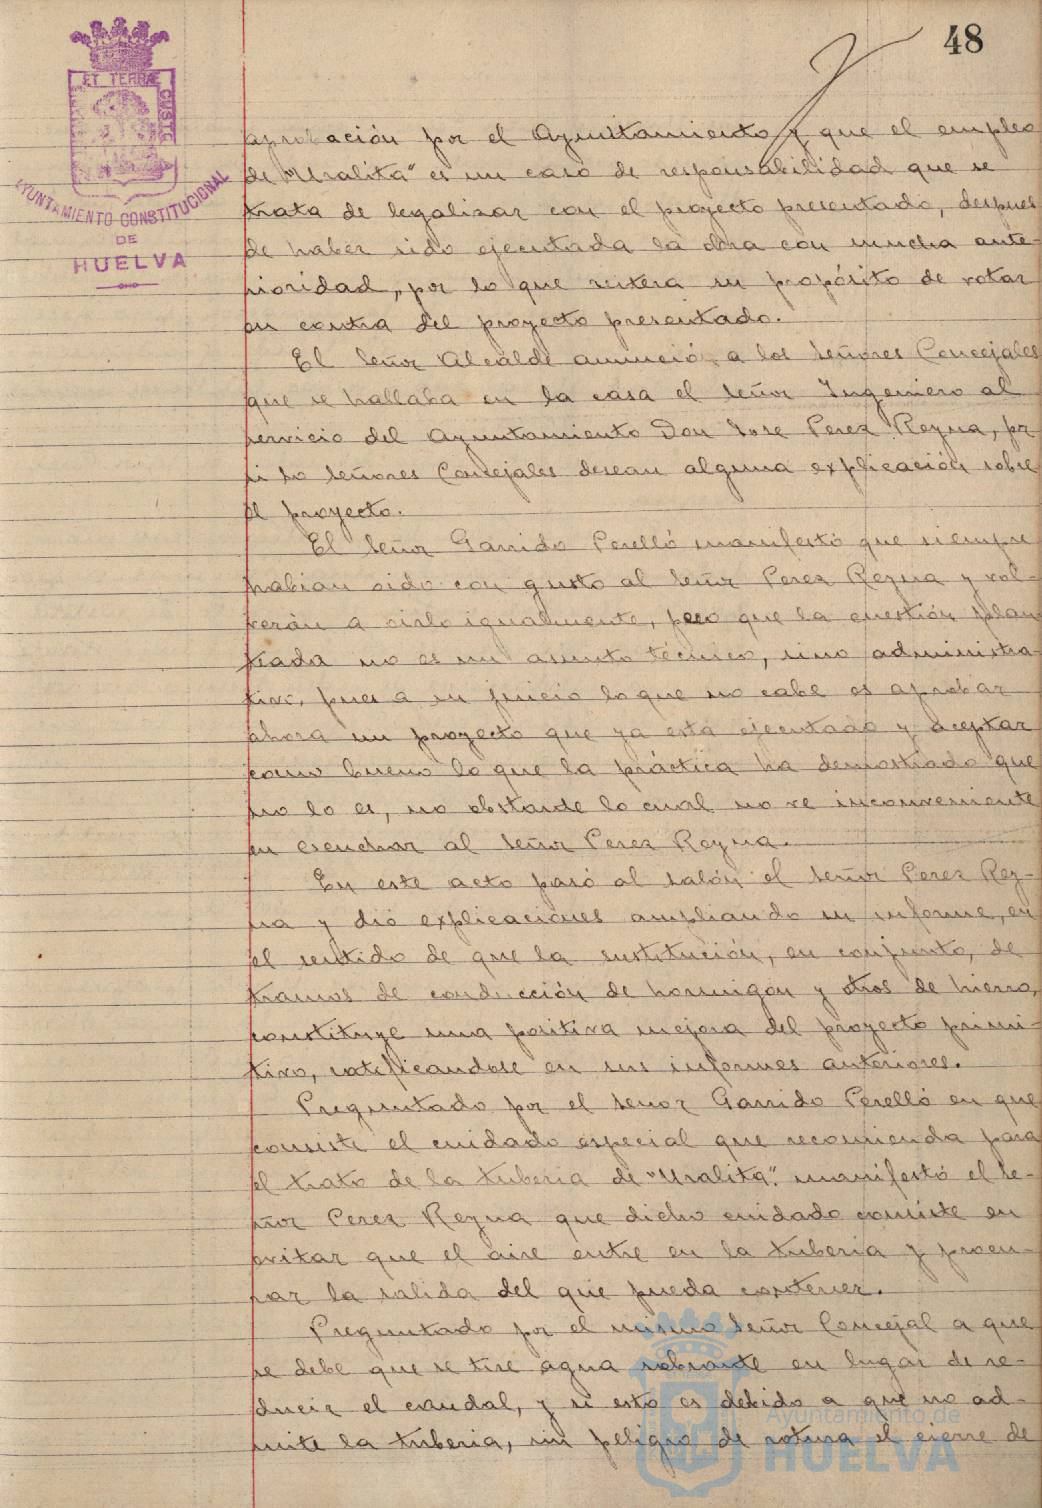 48
ET TERRÆ CUSTO
AYUNTAMIENTO CONSTITUCIONAL
DE
HUELVA
aprobación por el Ayuntamiento y que el empleo
de "Uralita" es un caso de responsabilidad que se
trata de legalizar con el proyecto presentado, despues
de haber sido ejecutada la obra con mucha ante-
rioridad, por lo que reitera su propósito de votar
en contra del proyecto presentado.
El Señor Alcalde anunció a los Señores Concejales
que se hallaba en la casa el Señor Ingeniero al
servicio del Ayuntamiento Don Jose Perez Reyna, por
si los Señores Concejales desean alguna explicación sobre
el proyecto.
El Señor Garrido Perelló manifestó que siempre
habian oido con gusto al Señor Perez Reyna y vol-
verán a oirlo igualmente, pero que la cuestión plan
teada no es un asunto técnico, sino administra-
tivo, pues a su juicio lo que no cabe es aprobar
ahora un proyecto que ya está ejecutado y aceptar
como bueno lo que la práctica ha demostrado que
no lo es, no obstante lo cual no ve inconveniente
en escuchar al Señor Perez Reyna.
En este acto pasó al salón el Señor Perez Rey-
na y dió explicaciones ampliando su informe, en
el sentido de que la sustitución, en conjunto, de
tramos de conducción de hormigón y otros de hierro,
constituye una positiva mejora del proyecto primi-
tivo, ratificandose en sus informes anteriores.
Preguntado por el Señor Garrido Perelló en que
consiste el cuidado especial que recomienda para
el trato de la tuberia de "Uralita", manifestó el Se-
ñor Perez Reyna que dicho cuidado consiste en
evitar que el aire entre en la tuberia y procu-
rar la salida del que pueda contener.
Preguntado por el mismo Señor Concejal a que
se debe que se tire agua sobrante en lugar de re-
ducir el caudal, y si esto es debido a que no ad-
mite la tuberia, sin peligro de rotura el cierre de
Ayuntamiento de
HUELVA